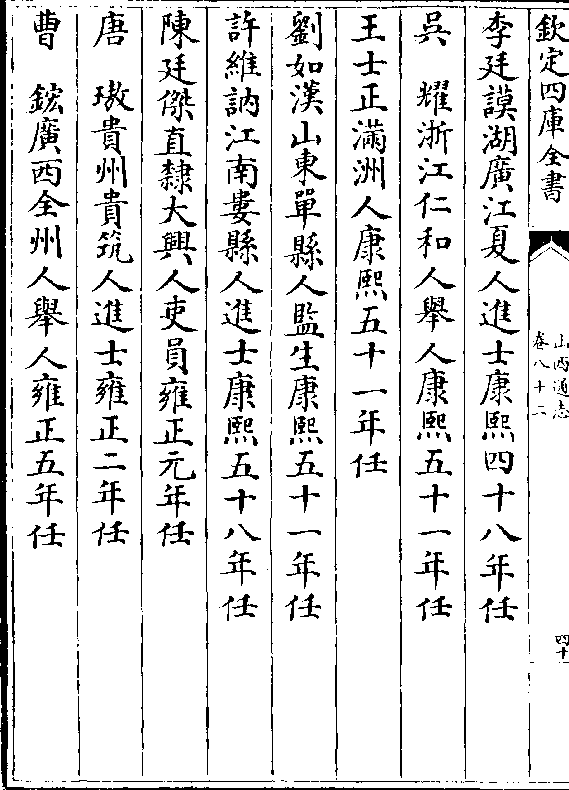 欽定四庫全書
山西通志
卷八十二
四十
李廷謨湖廣江夏人進士康熙四十八年任
吳　耀浙江仁和人舉人康熙五十一年任
王士正滿洲人康熙五十一年任
劉如漢山東單縣人監生康熙五十一年任
許維訥江南婁縣人進士康熙五十八年任
陳廷傑直隸大興人吏員雍正元年任
唐　璈貴州貴筑人進士雍正二年任
曹　鋐廣西全州人舉人雍正五年任